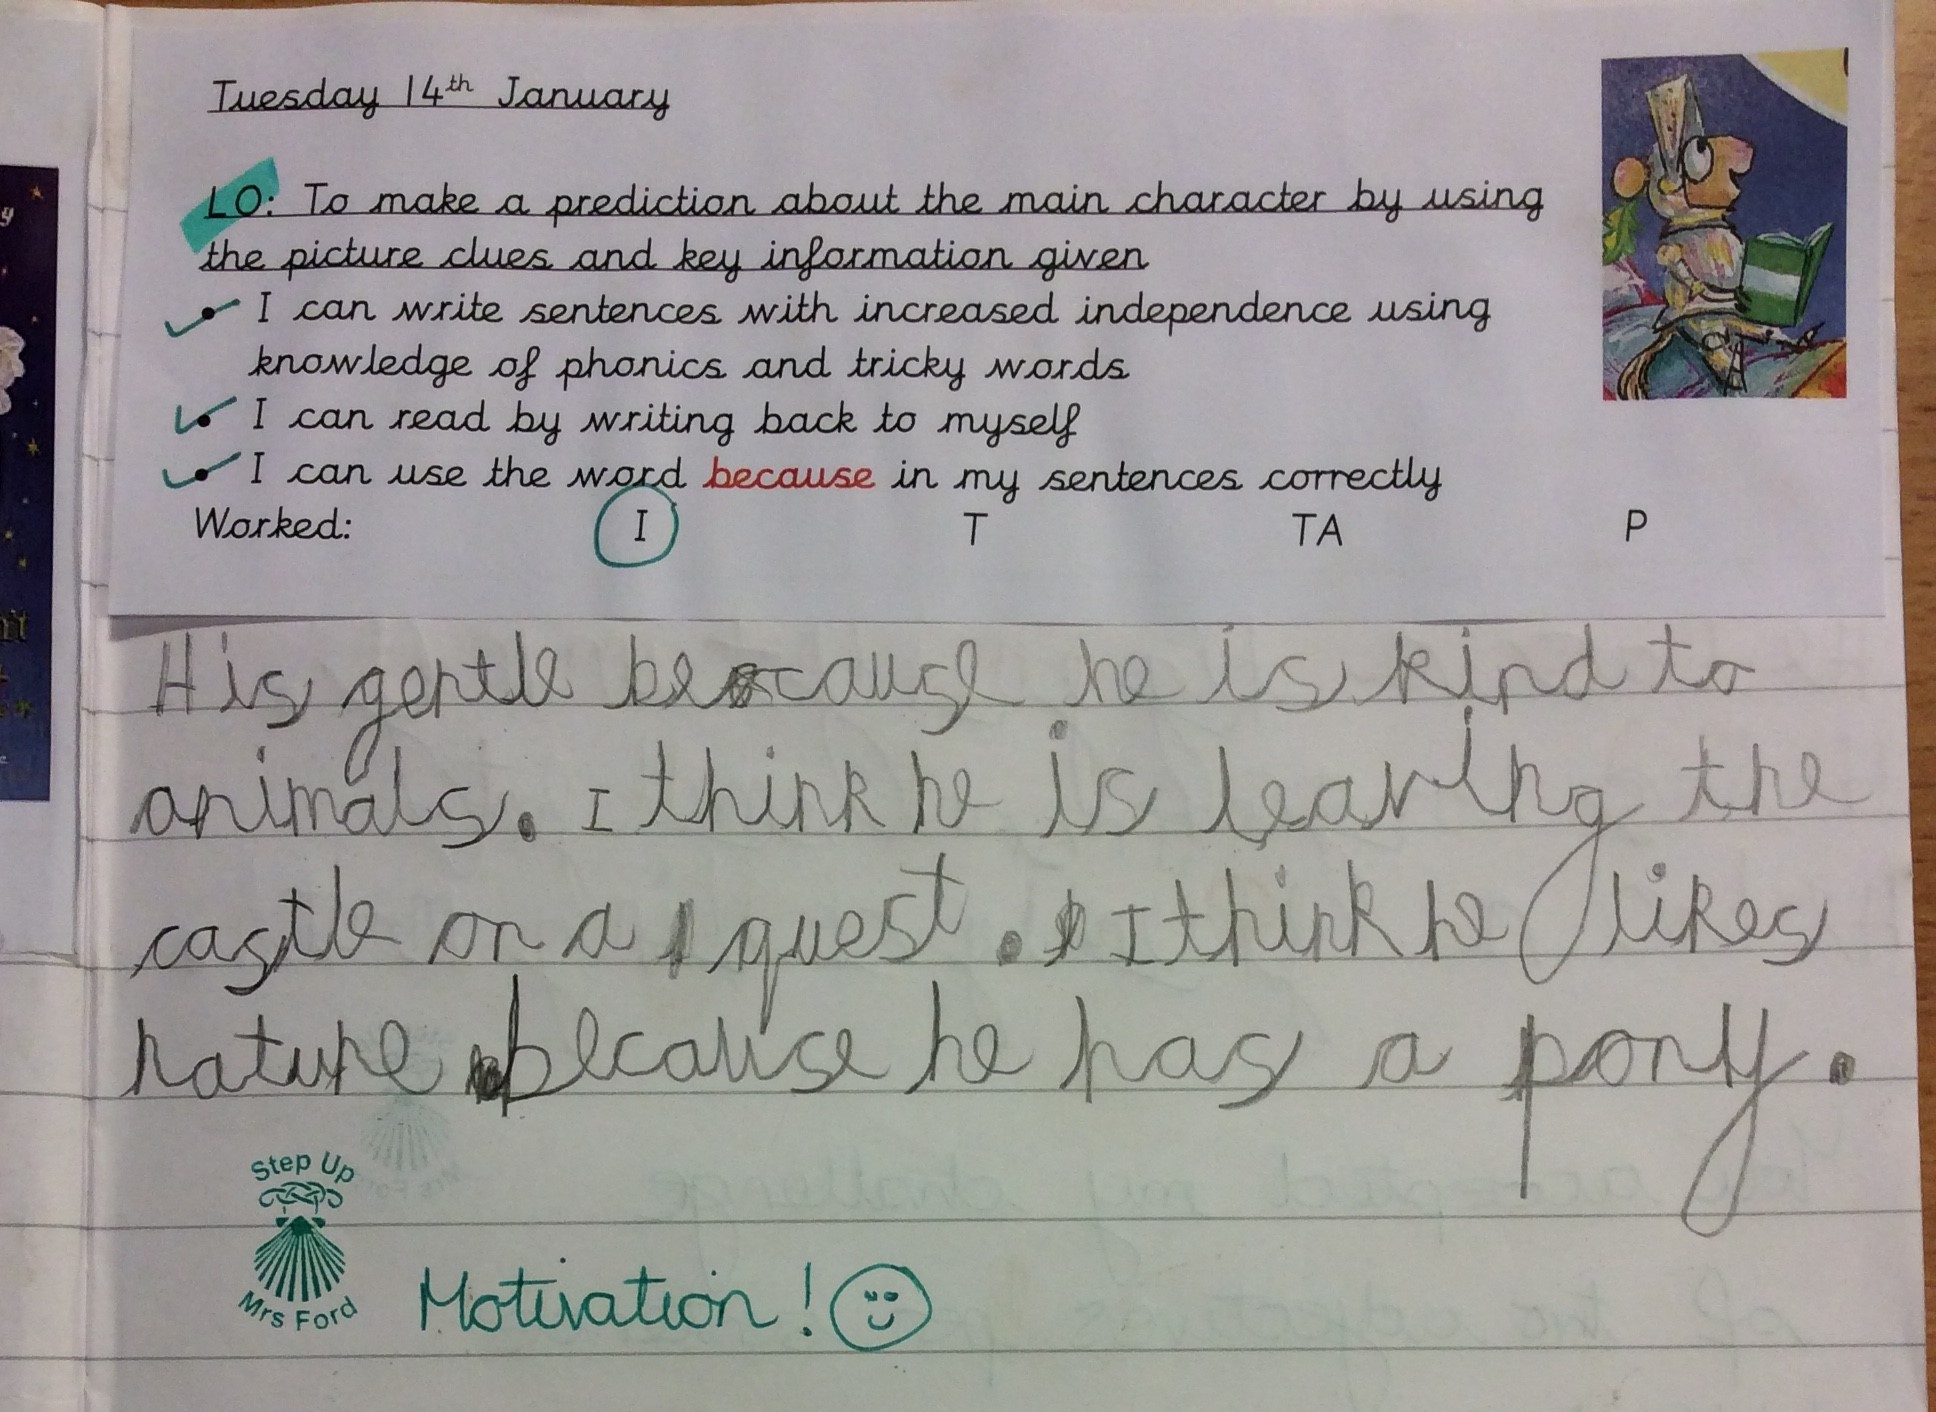 Tuesday 14th January
LO: To make a prediction about the main character by using
the picture clues and key information given
• I can write sentences with increased independence using
knowledge of phonics and tricky words
• I can read by writing back to myself
• I can use the word because in my sentences correctly
Worked: I T TA P
His gentle because he is kind to
animals. I think he is leaving the
castle on a quest. I think he likes
nature because he has a pony.
Step Up
Mrs Ford
Motivation!